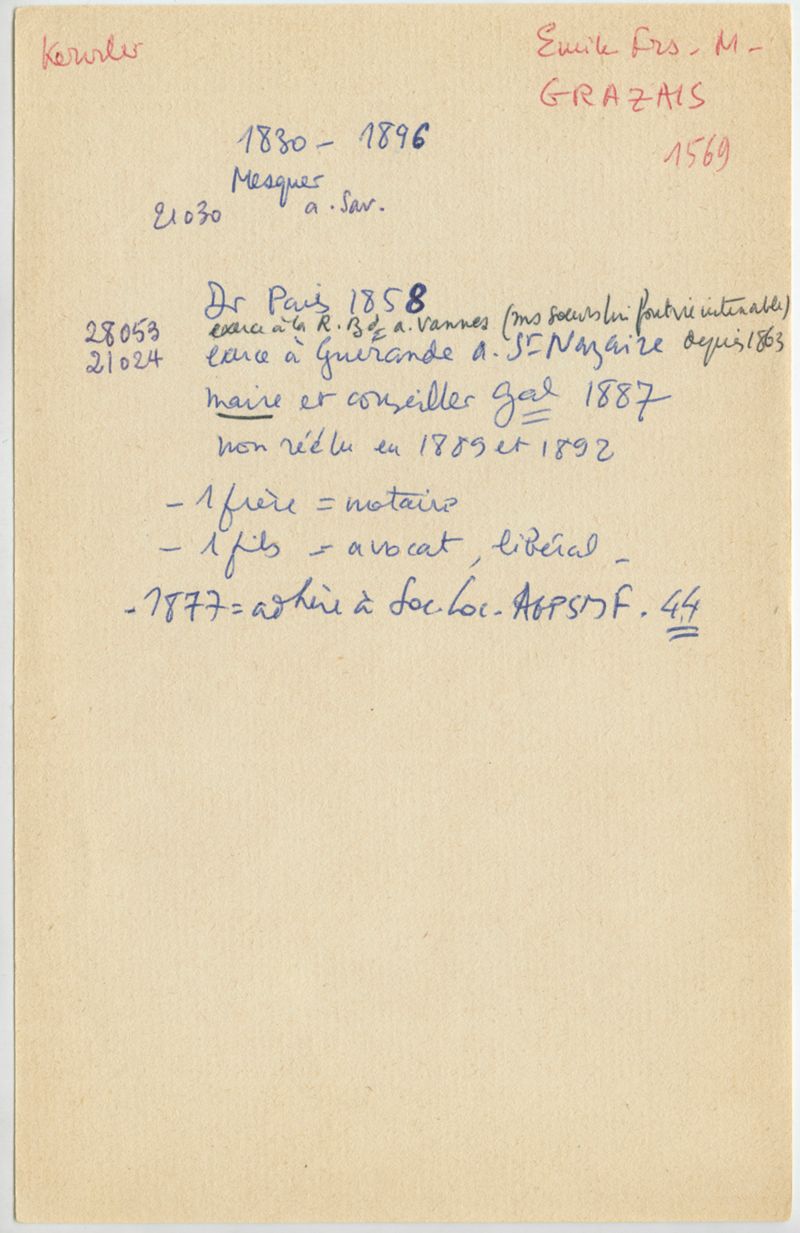 Kerviler
Emile Frs. M -
GRAZAIS
1569
1830 - 1896
Mesquer
a. Sav.
21030
Dr Paris 1858
28053 exerce à la R. Bd a. Vannes (ms soeurs lui font vie intenable)
21024 exerce à Guérande a. St Nazaire depuis 1863
maire et conseiller Gal 1887
non réélu en 1889 et 1892
- 1 frère = notaire
- 1 fils = avocat, libéral -
- 1877 = adhère à Soc. Loc. AGPSMF. 44